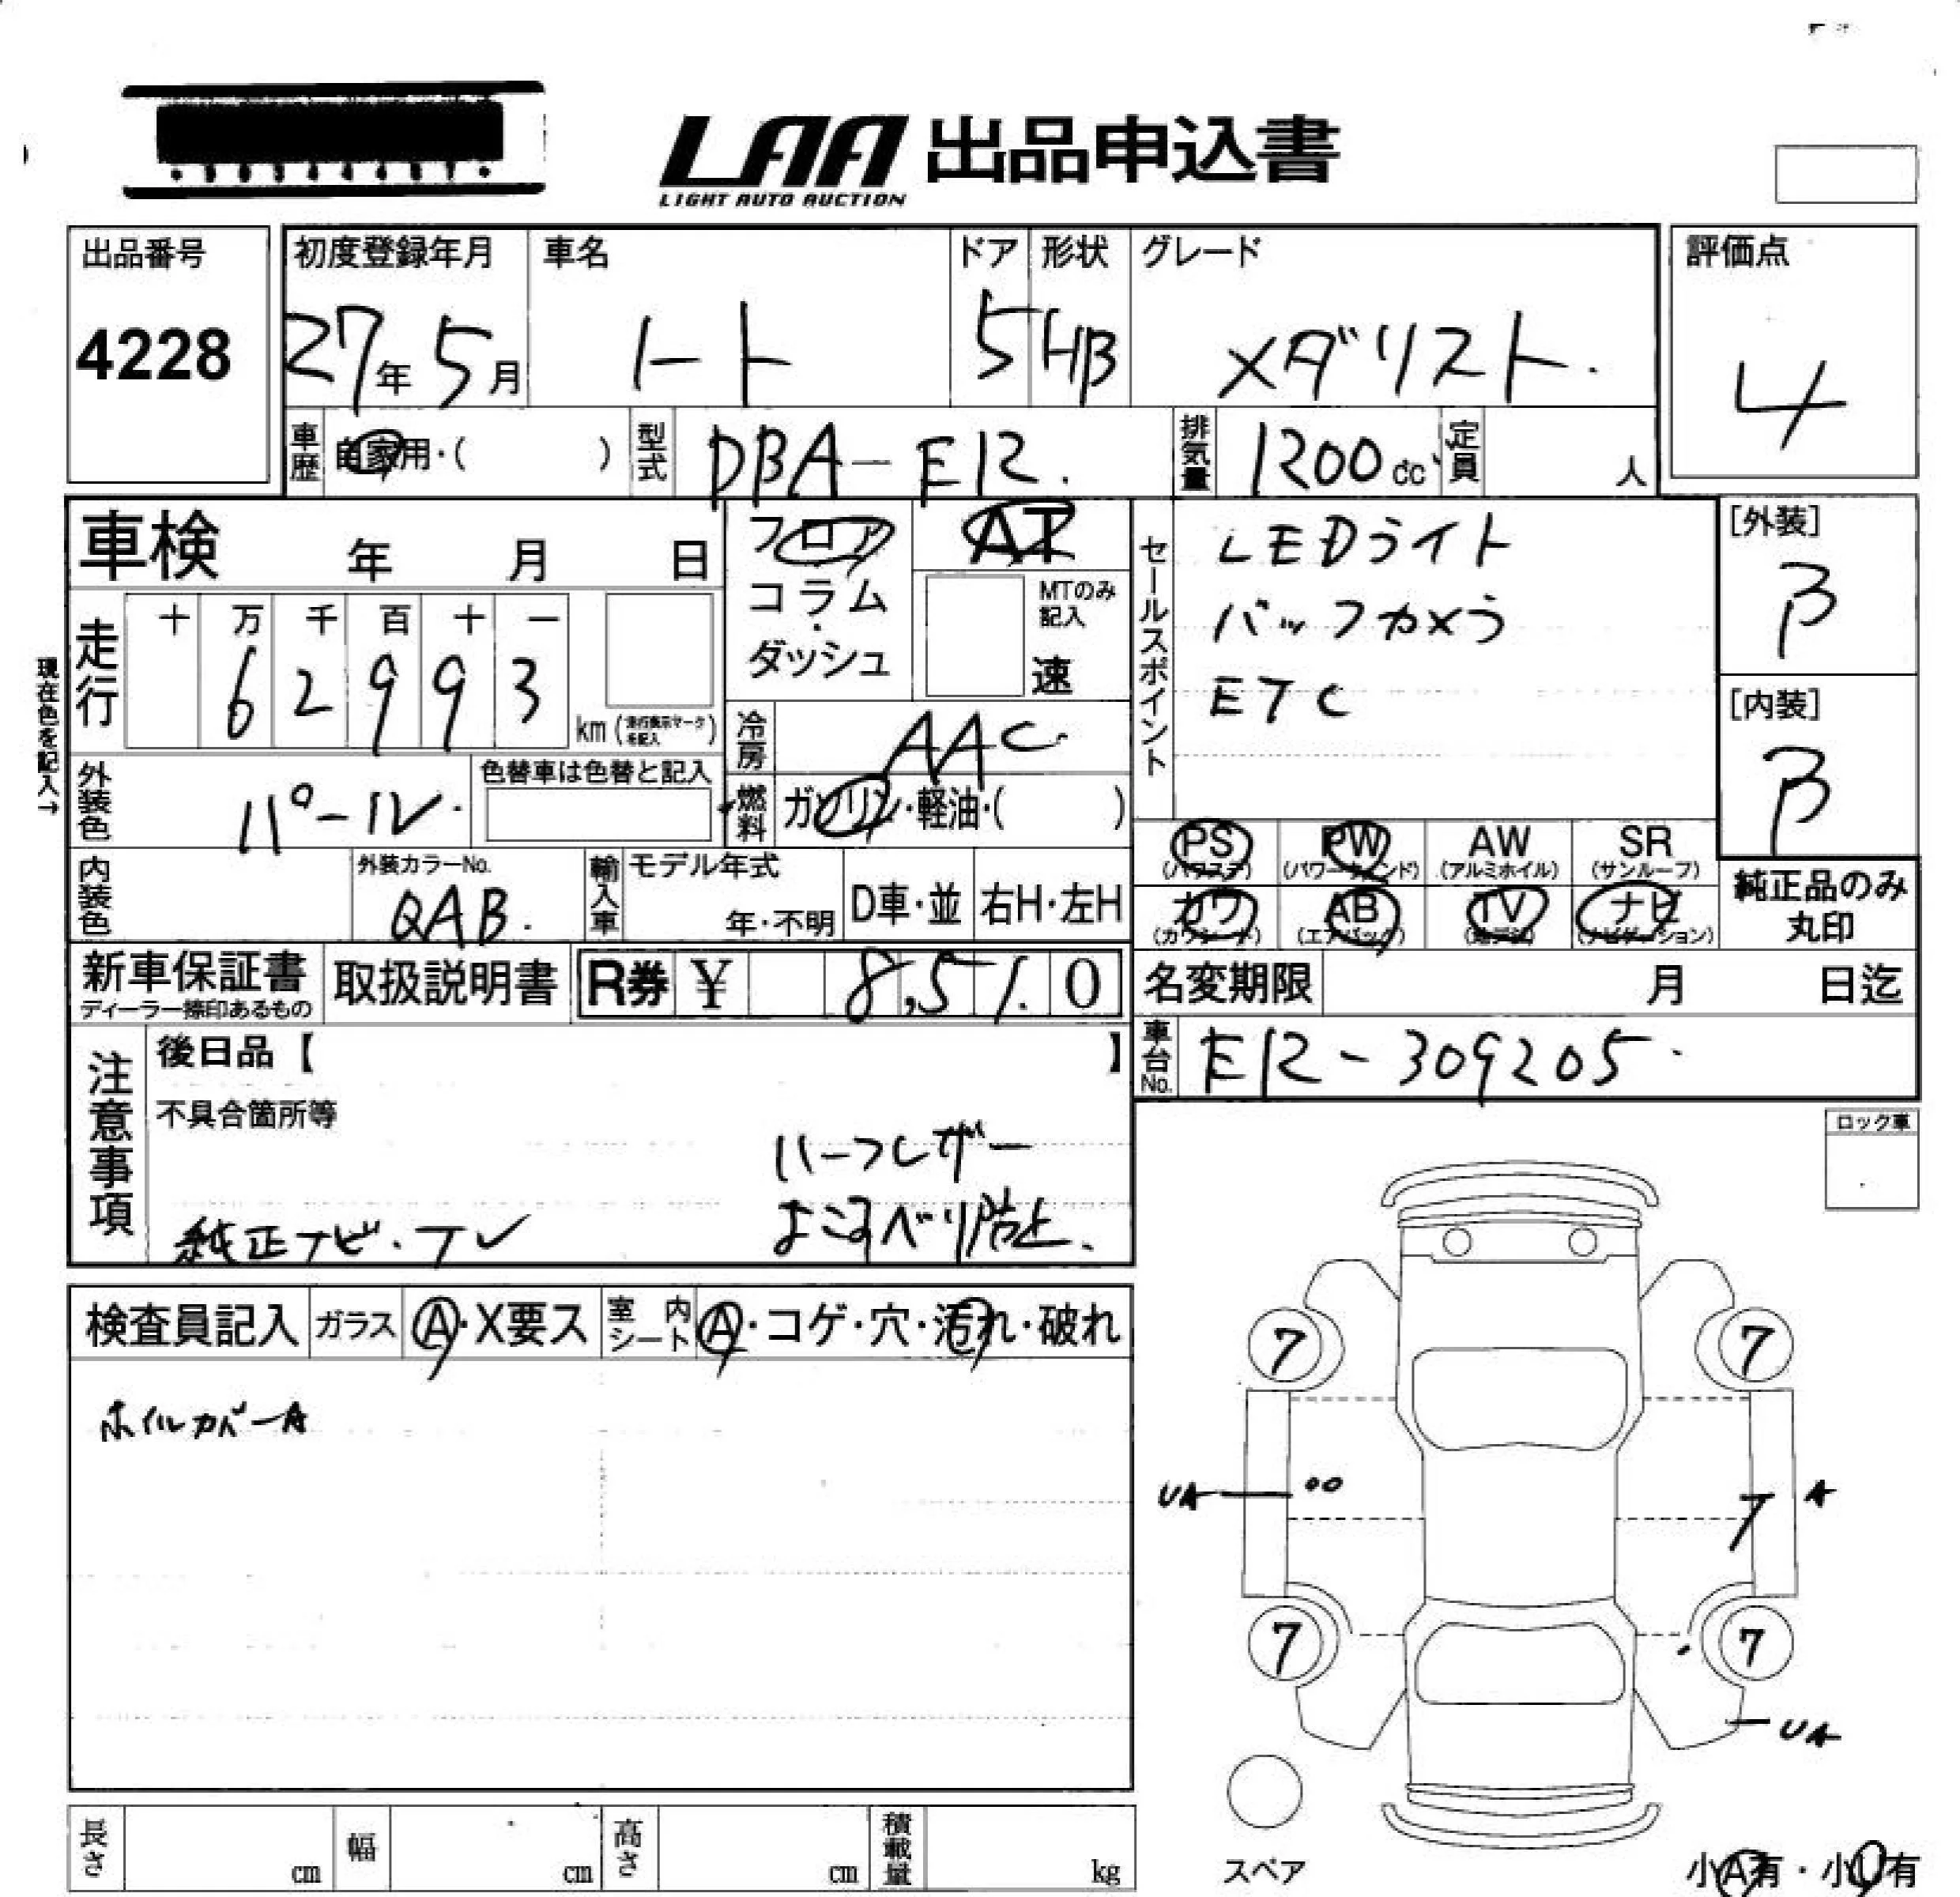 LAA 出品申込書
LIGHT AUTO AUCTION
出品番号
4228
初度登録年月
27年 5月
車名
ノート
ドア
5
形状
HB
グレード
メダリスト.
評価点
4
車歴
自家用・( )
型式
DBA-E12.
排気量
1200cc
定員
人
車検 年 月 日
フロア
コラム
・
ダッシュ
AT
MTのみ
記入
速
セールスポイント
LEDライト
バックカメラ
ETC
[外装]
B
[内装]
B
現在色を記入→
走行
十 万 千 百 十 一
6 2 9 9 3
km(走行表示マークを記入)
冷房
AAC
外装色
パール.
色替車は色替と記入
燃料
ガソリン・軽油・( )
PS
(パワステ)
PW
(パワーウィンド)
AW
(アルミホイル)
SR
(サンルーフ)
カワ
(カワシート)
AB
(エアバック)
TV
(地デジ)
ナビ
(ナビゲーション)
純正品のみ
丸印
内装色
外装カラーNo.
QAB.
輸入車
モデル年式
年・不明
D車・並
右H・左H
新車保証書
ディーラー捺印あるもの
取扱説明書
R券 ¥ 8,51.0
名変期限 月 日迄
車台No.
E12-309205.
注意事項
後日品【 】
不具合箇所等
ハーフレザー
純正ナビ.TV
よこすべり防止.
ロック車
検査員記入
ガラス
A・X要ス
室内シート
A・コゲ・穴・汚れ・破れ
ホイルカバーA
7 7
UA
A
7
7 7
UA
スペア
小A有・小U有
長さ cm
幅 cm
高さ cm
積載量 kg